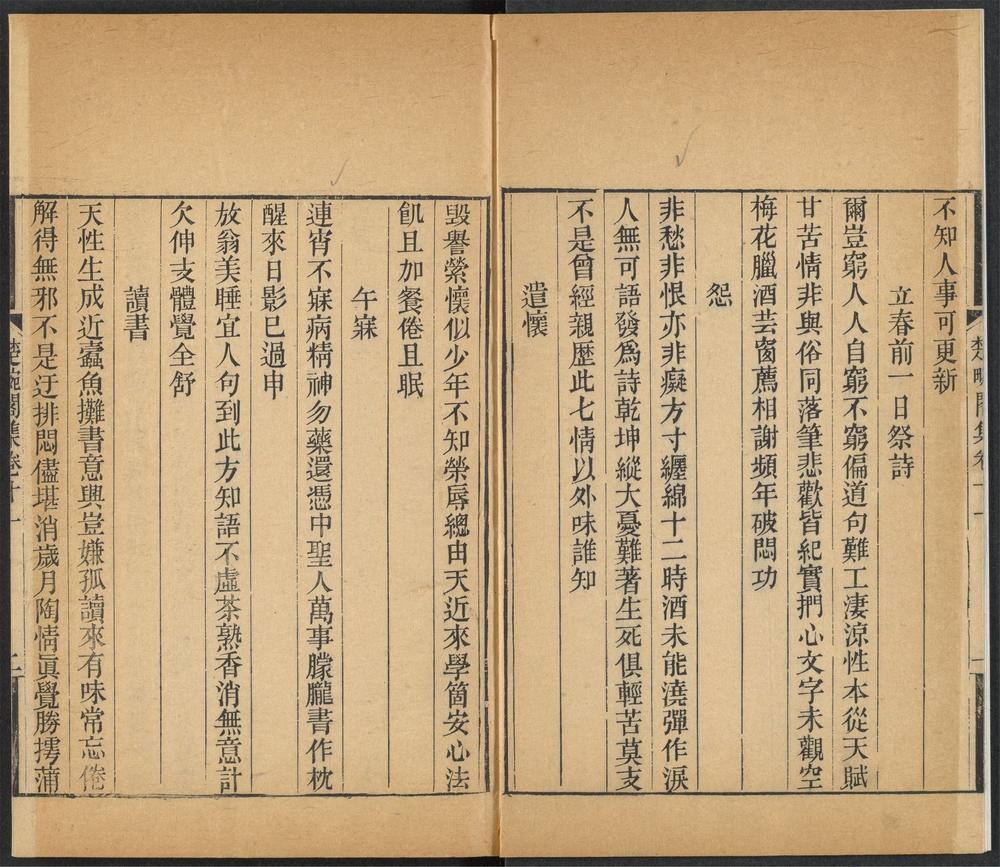 不知人事可更新
立春前一日祭詩
爾豈窮人人自窮不窮偏道句難工凄涼性本從天賦
甘苦情非與俗同落筆悲歡皆紀實捫心文字未觀空
梅花臘酒芸窗薦相謝頻年破悶功
怨
非愁非恨亦非癡方寸纏綿十二時酒未能澆彈作淚
人無可語發爲詩乾坤縱大憂難著生死俱輕苦莫支
不是曾經親歷此七情以外味誰知
遣懷
楚畹閣集卷十一
毀譽縈懷似少年不知榮辱總由天近來學箇安心法
飢且加餐倦且眠
午寐
連宵不寐病精神勿藥還憑中聖人萬事朦朧書作枕
醒來日影已過申
放翁美睡宜人句到此方知語不虛茶熟香消無意計
欠伸支體覺全舒
讀書
天性生成近蠹魚攤書意興豈嫌孤讀來有味常忘倦
解得無邪不是迂排悶儘堪消歲月陶情眞覺勝摴蒲
楚畹閣集卷十一
二